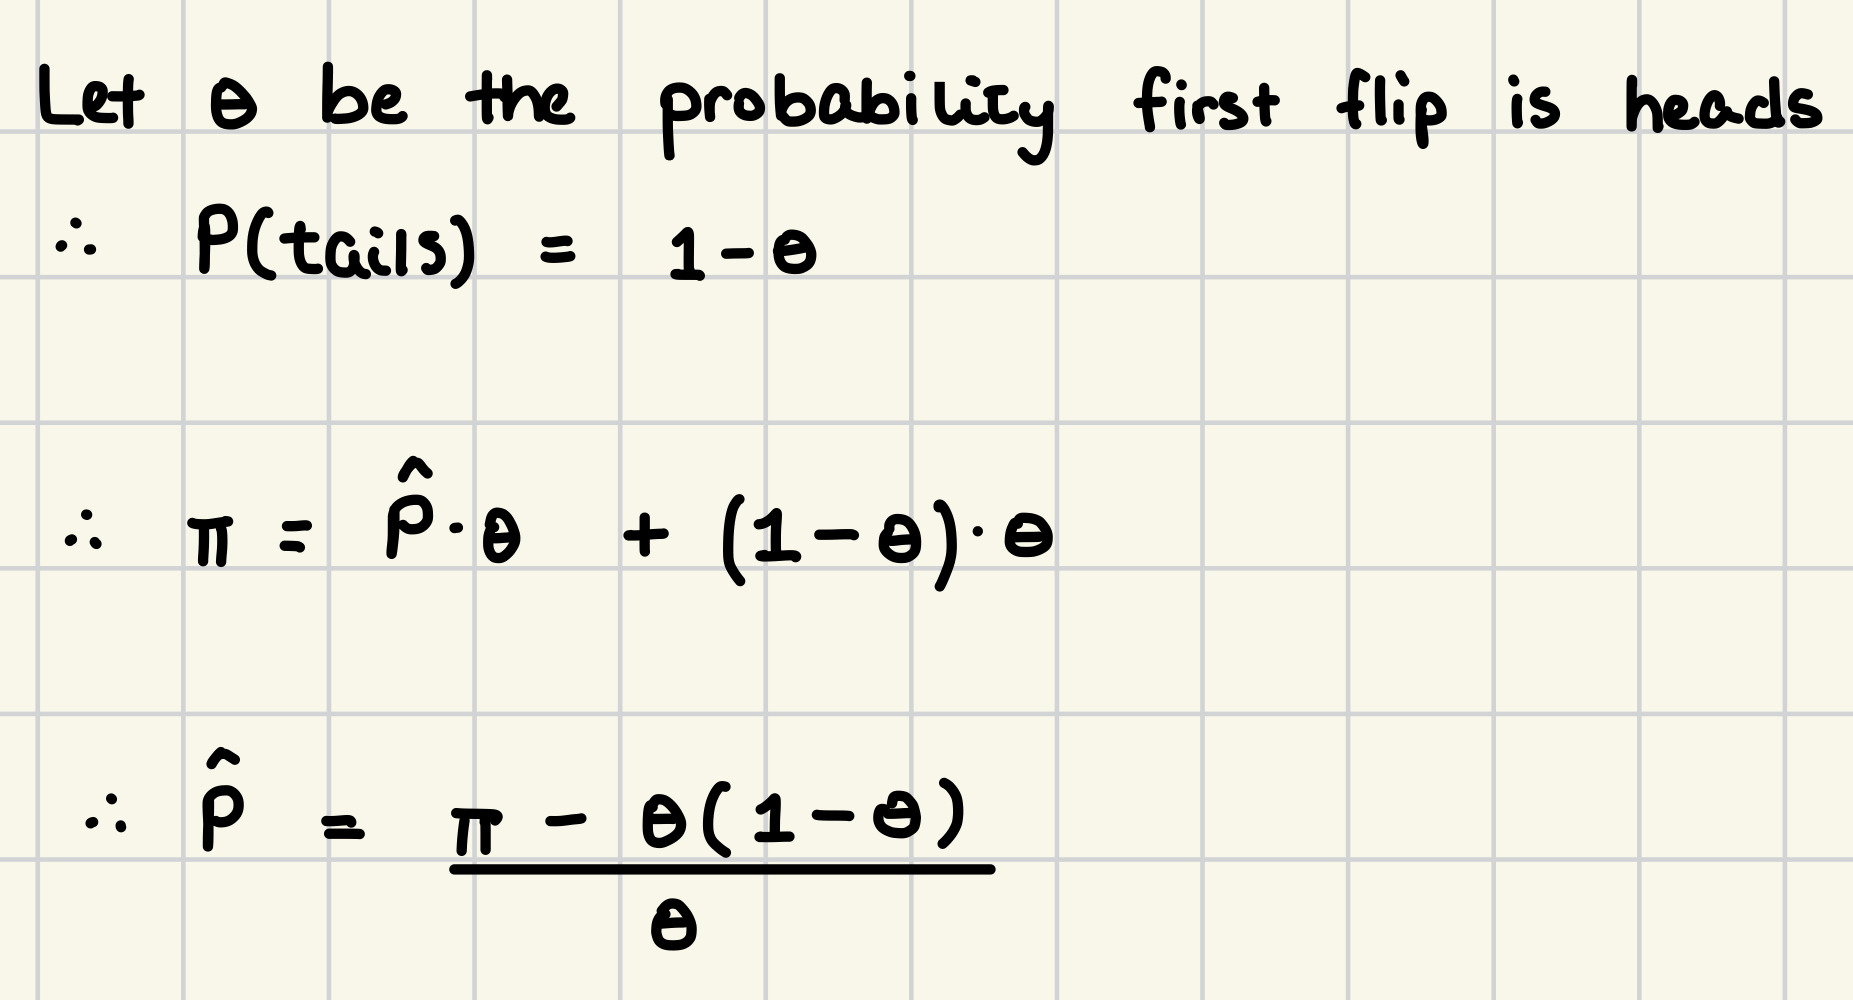 Let θ be the probability first flip is heads
∴ P(tails) = 1-θ
∴ π = p̂·θ + (1-θ)·θ
∴ p̂ = π - θ(1-θ)
θ